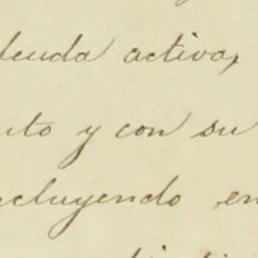 deuda activa,
uto y con su
cluyendo en